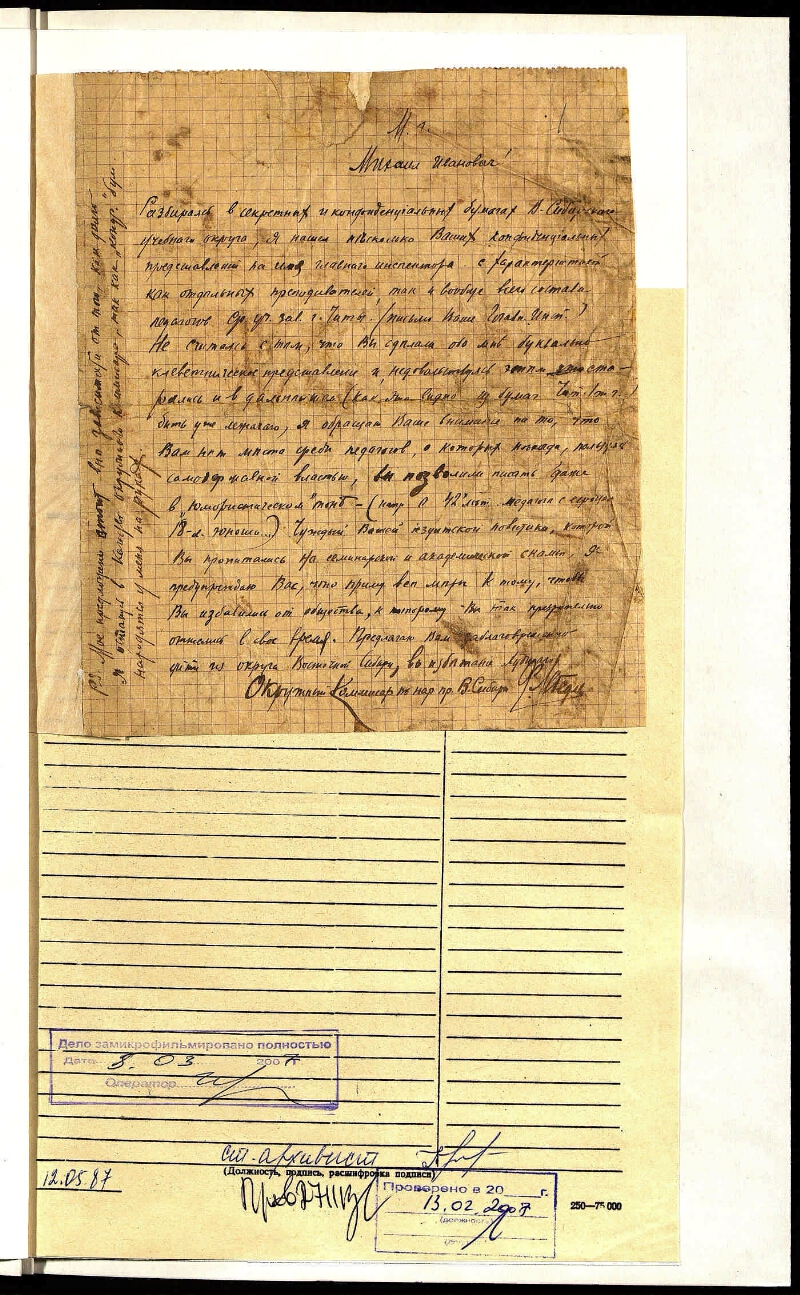 М. г.
Михаил Иванович!
Разбираясь в секретных и конфиденциальных бумагах В.-Сибирского
учебного округа, я нашел несколько Ваших конфиденциальных
представлений на имя главного инспектора с характеристикой
как отдельных преподавателей так и вообще всего состава
педагогов Ср. уч. зав. г. Читы. (письма Ваши Главн. Инсп.)
Не считаясь с тем, что Вы сделали обо мне буквально
клеветническое представление и, недовольствуясь этим,
рались и в дальнейшем (как это видно из бумаг Чит.
бить уже лежачего, я обращаю Ваше внимание на то, что
Вам нет места среди педагогов, о которых когда,
самодержавной властью, вы позволили писать даже
в "юмористическом" тоне – (напр. о 42 лет. педагоге с сердцем
18-л. юноши...) Чуждый Вашей иезуитской политики, которой
Вы пропитались на семинарской и академической скамье, я
предупреждаю Вас, что приму все меры к тому, чтобы
Вы избавили от общества, к которому Вы так презрительно
относились в свое время. Предлагаю Вам заблаговременно
уйти из округа Восточной Сибири, во избежание
Окружный Комиссар по нар. пр. В. Сибири
P.S. Мое послание вно зависимости от того, как
Я остался в Комиссар, так как бум.
находятся у меня на руках.
Дело замикрофильмировано полностью
Дата 5. 03 2007 г
Оператор
ст. архивист
(Должность, подпись, расшифровка подписи)
12.05.87
Проверено в 20 г.
13.02.2007
(должность)
250—75 000